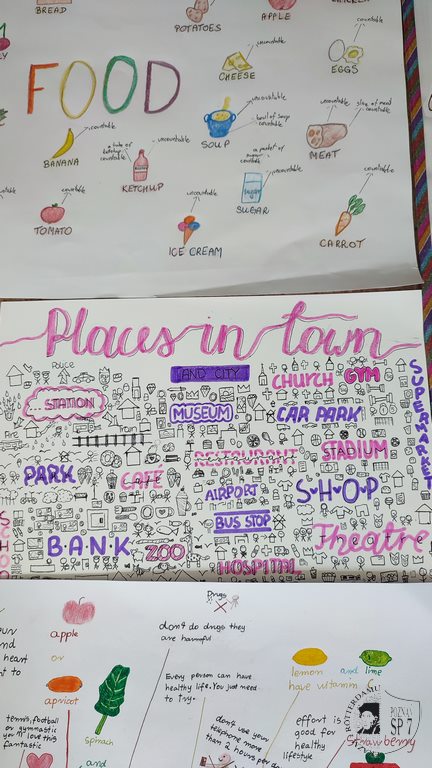 BREAD
POTATOES
APPLE
FOOD
uncountable
CHEESE
countable
EGGS
countable
BANANA
uncountable
KETCHUP
uncountable
bowl of soup
countable
SOUP
uncountable
slice of meat
countable
MEAT
countable
TOMATO
uncountable
ICE CREAM
uncountable
SUGAR
countable
CARROT
Places in town
AND CITY
POLICE
STATION
MUSEUM
CHURCH
GYM
CAR PARK
SUPERMARKET
RESTAURANT
STADIUM
PARK
CAFÉ
AIRPORT
SHOP
BUS STOP
BANK
ZOO
Theatre
HOSPITAL
apple
or
apricot
spinach
and
tennis, football
or gymnastic
you'll love this
fantastic
Drugs
don't do drugs they
are harmful
Every person can have
healthy life. You just need
to try.
don't use your
telephone more
than 2 hours per day
lemon and lime
have vitamin
effort is
good for
healthy
lifestyle
strawberry
POZNAŃ
SP 7